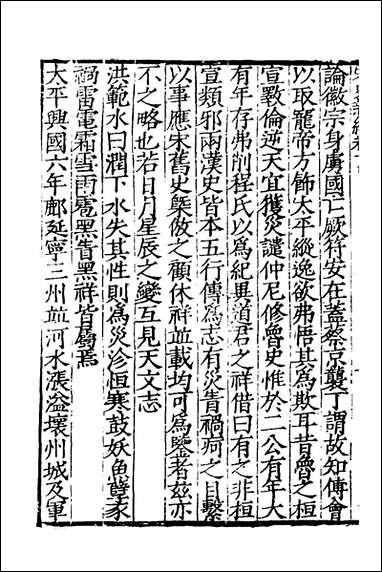 論徽宗身虜國亡厥符安在蓋蔡京襲丁謂故知傳會
以取寵帝方飾太平縱逸欲弗悟其爲欺耳昔魯之桓
宣斁倫逆天宜獲災譴仲尼修魯史惟於二公有年大
有年存弗削程氏以爲紀異道君之祥借曰有之非桓
宣類邪兩漢史皆本五行傳爲志有災眚禍痾之目繫
以事應宋舊史槩倣之顧休祥並載均可爲鑒者茲亦
不之略也若日月星辰之變互見天文志
洪範水曰潤下水失其性則爲災沴恒寒鼓妖魚孽豕
禍雷電霜雪雨雹黑眚黑祥皆屬焉
太平興國六年鄜延寧三州並河水漲溢壞州城及軍